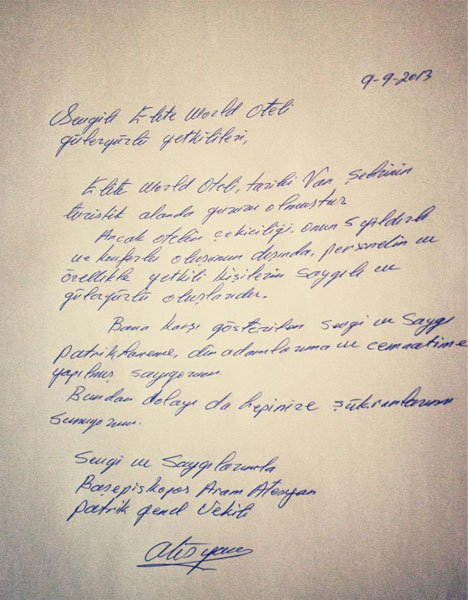 9-9-2013
Sevgili Elite World Oteli
güleryüzlü yetkilileri,
Elite World Oteli, tarihi Van Şehrinin
turistik alanda yüzünü olmuştur
Ancak otelin çekiciliği, onun 5 yıldızlı
ve konforlu oluşunun dışında, personelin ve
özellikle yetkili kişilerin saygılı ve
güleryüzlü oluşlarıdır.
Bana karşı gösterilen sevgi ve saygı
Patrikhaneme, din adamlarıma ve cemaatime
yapılmış sayıyorum.
Bundan dolayı da hepinize şükranlarımı
sunuyorum.
Sevgi ve Saygılarımla
Başepiskopos Aram Ateşyan
Patrik Genel Vekili